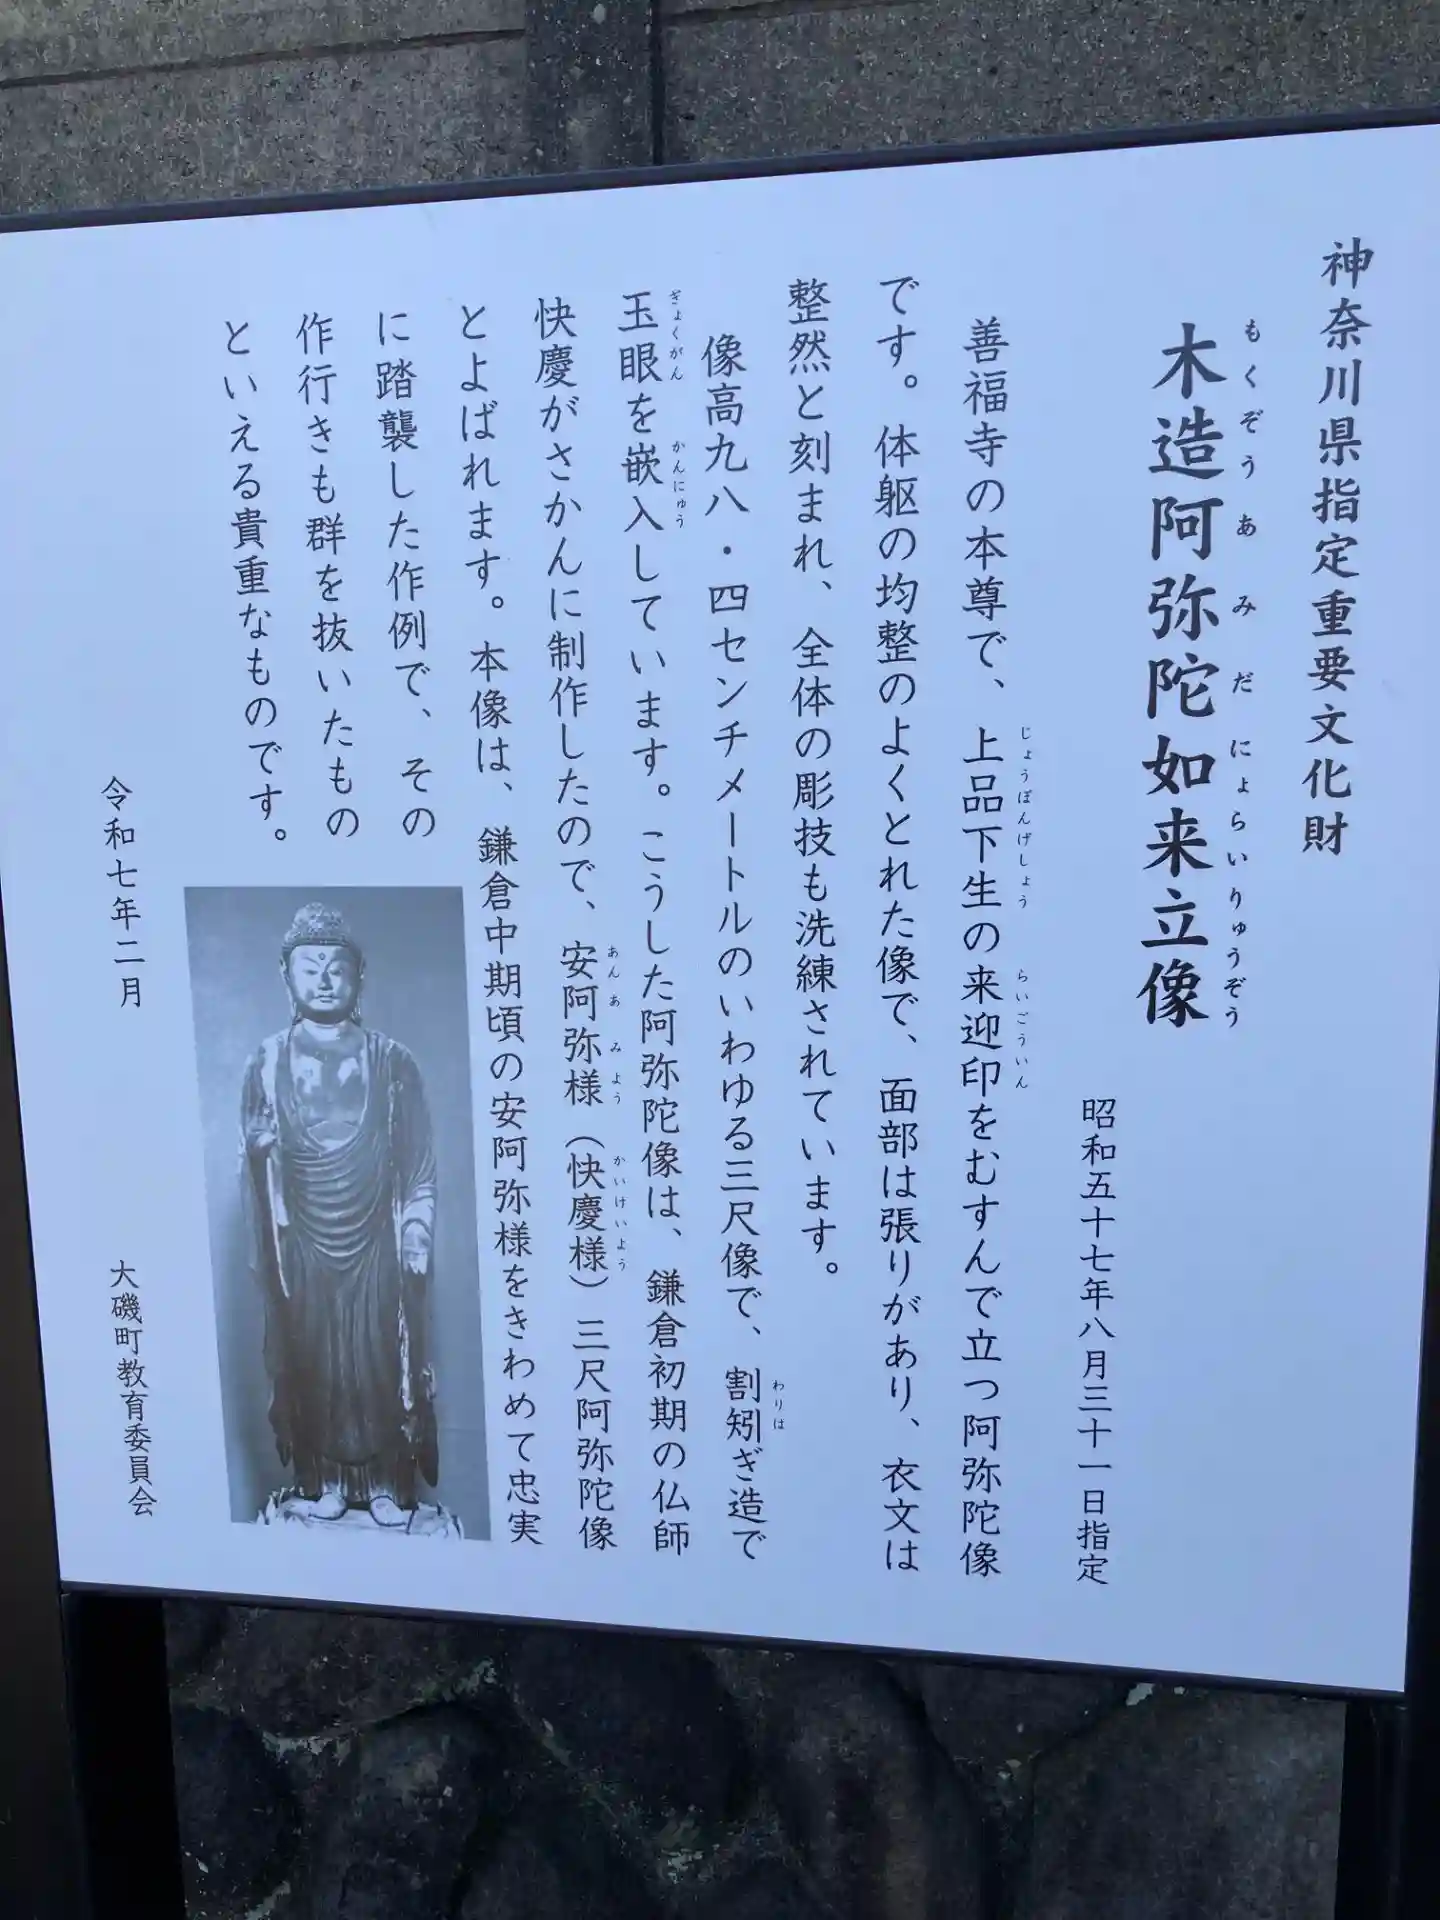 神奈川県指定重要文化財
木造阿弥陀如来立像
もくぞうあみだにょらいりゅうぞう
昭和五十七年八月三十一日指定
善福寺の本尊で、上品下生の来迎印をむすんで立つ阿弥陀像
じょうぼんげしょう
らいごういん
です。体躯の均整のよくとれた像で、面部は張りがあり、衣文は
整然と刻まれ、全体の彫技も洗練されています。
像高九八・四センチメートルのいわゆる三尺像で、割矧ぎ造で
わりは
玉眼を嵌入しています。こうした阿弥陀像は、鎌倉初期の仏師
ぎょくがん
かんにゅう
快慶がさかんに制作したので、安阿弥様（快慶様）三尺阿弥陀像
あんあみよう
かいけいよう
とよばれます。本像は、鎌倉中期頃の安阿弥様をきわめて忠実
に踏襲した作例で、その
作行きも群を抜いたもの
といえる貴重なものです。
令和七年二月
大磯町教育委員会